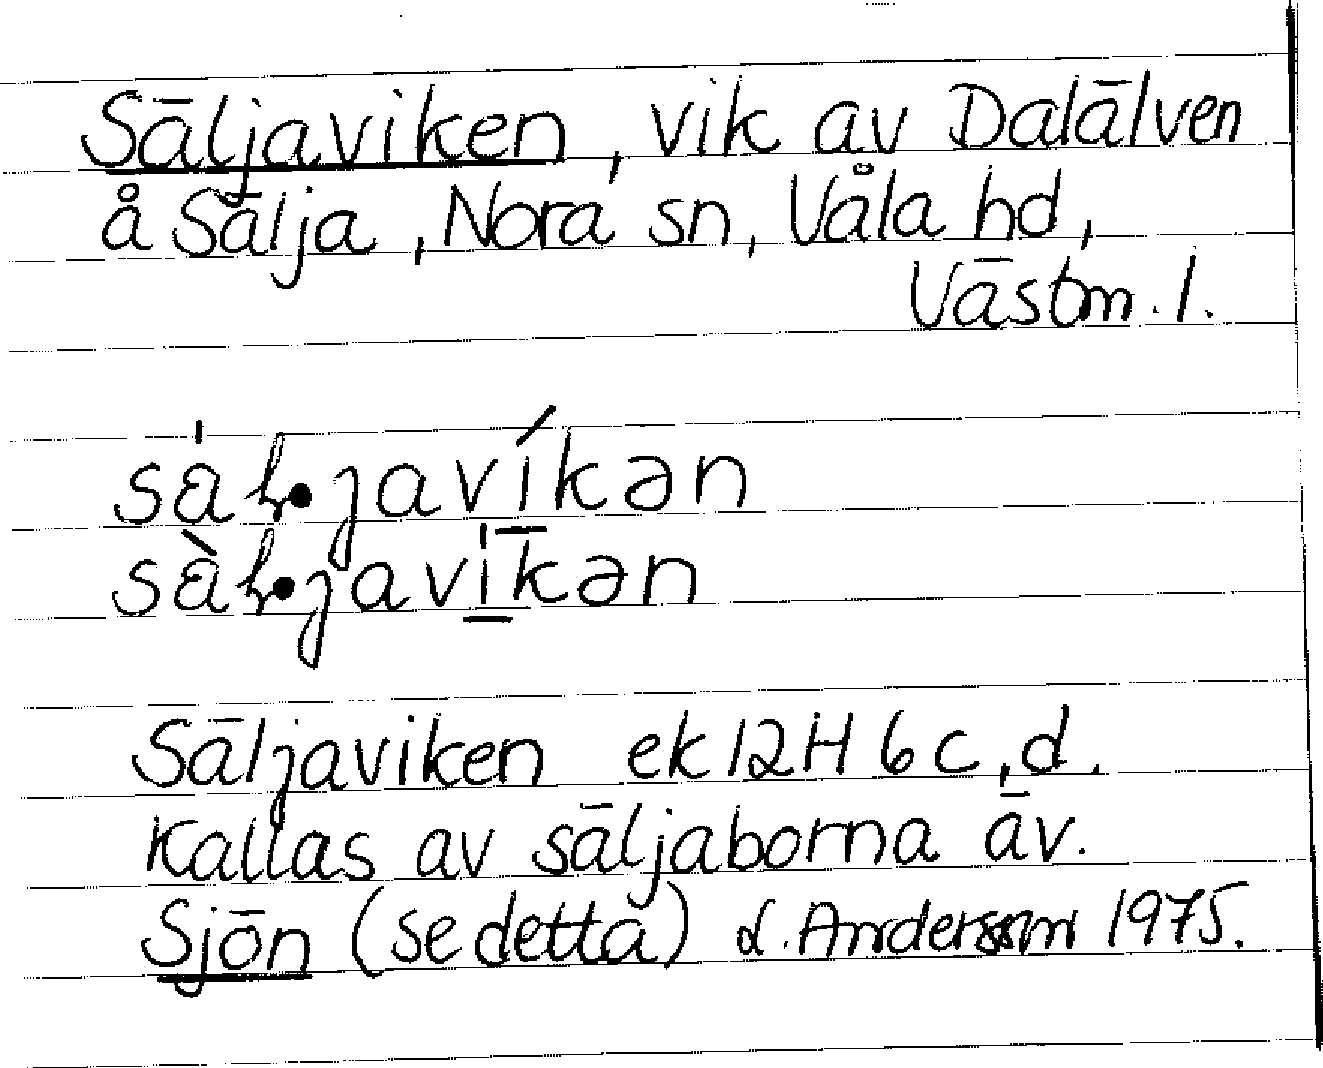 Säljaviken, vik av Dalälven
å Sälja, Nora sn, Våla hd,
Västm. l.
Säljaviken ek 12H 6c,d.
Kallas av säljaborna äv.
Sjön (se detta) L. Andersson 1975.